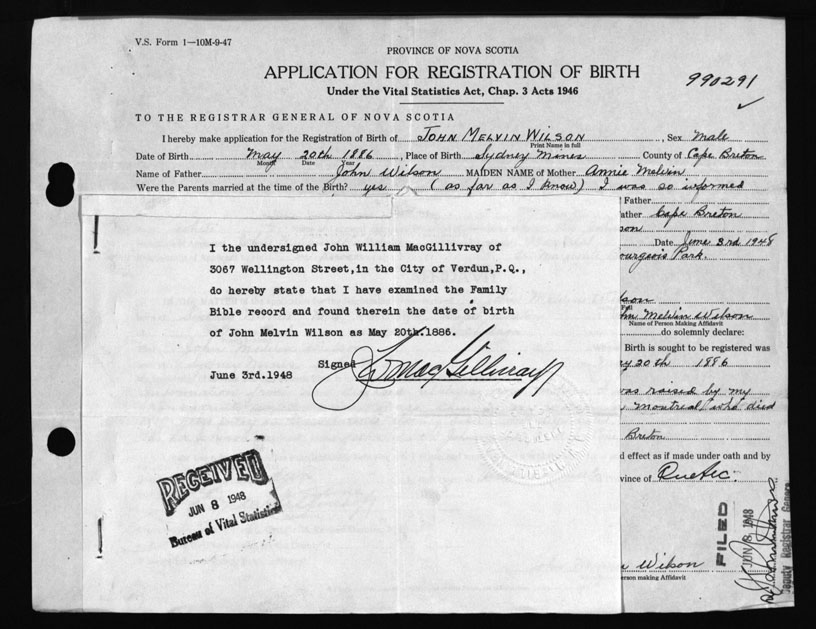 V.S. Form 1—10M-9-47
PROVINCE OF NOVA SCOTIA
APPLICATION FOR REGISTRATION OF BIRTH
990291
Under the Vital Statistics Act, Chap. 3 Acts 1946
TO THE REGISTRAR GENERAL OF NOVA SCOTIA
I hereby make application for the Registration of Birth of JOHN MELVIN WILSON, Sex Male
Print Name in full
Date of Birth May 20th 1886, Place of Birth Sydney Mines County of Cape Breton
Month Date Year
Name of Father John Wilson MAIDEN NAME of Mother Annie Melvin
Were the Parents married at the time of the Birth? yes (as far as I know) I was so informed
Father
ather Cape Breton
son
Date June 3rd 1948
ourgeois Park.
I the undersigned John William MacGillivray of
3067 Wellington Street,in the City of Verdun,P.Q.,
do hereby state that I have examined the Family
Bible record and found therein the date of birth
of John Melvin Wilson as May 20th.1886.
Signed J W MacGillivray
June 3rd.1948
RECEIVED
JUN 8 1948
Bureau of Vital Statistics
lson
hn Melvin Wilson
Name of Person Making Affidavit
do solemnly declare:
Birth is sought to be registered was
ay 20th 1886
was raised by my
Montreal, who died
Breton
d effect as if made under oath and by
vince of Quebec.
FILED
JUN 8 1948
Deputy Registrar General
Wilson
erson making Affidavit